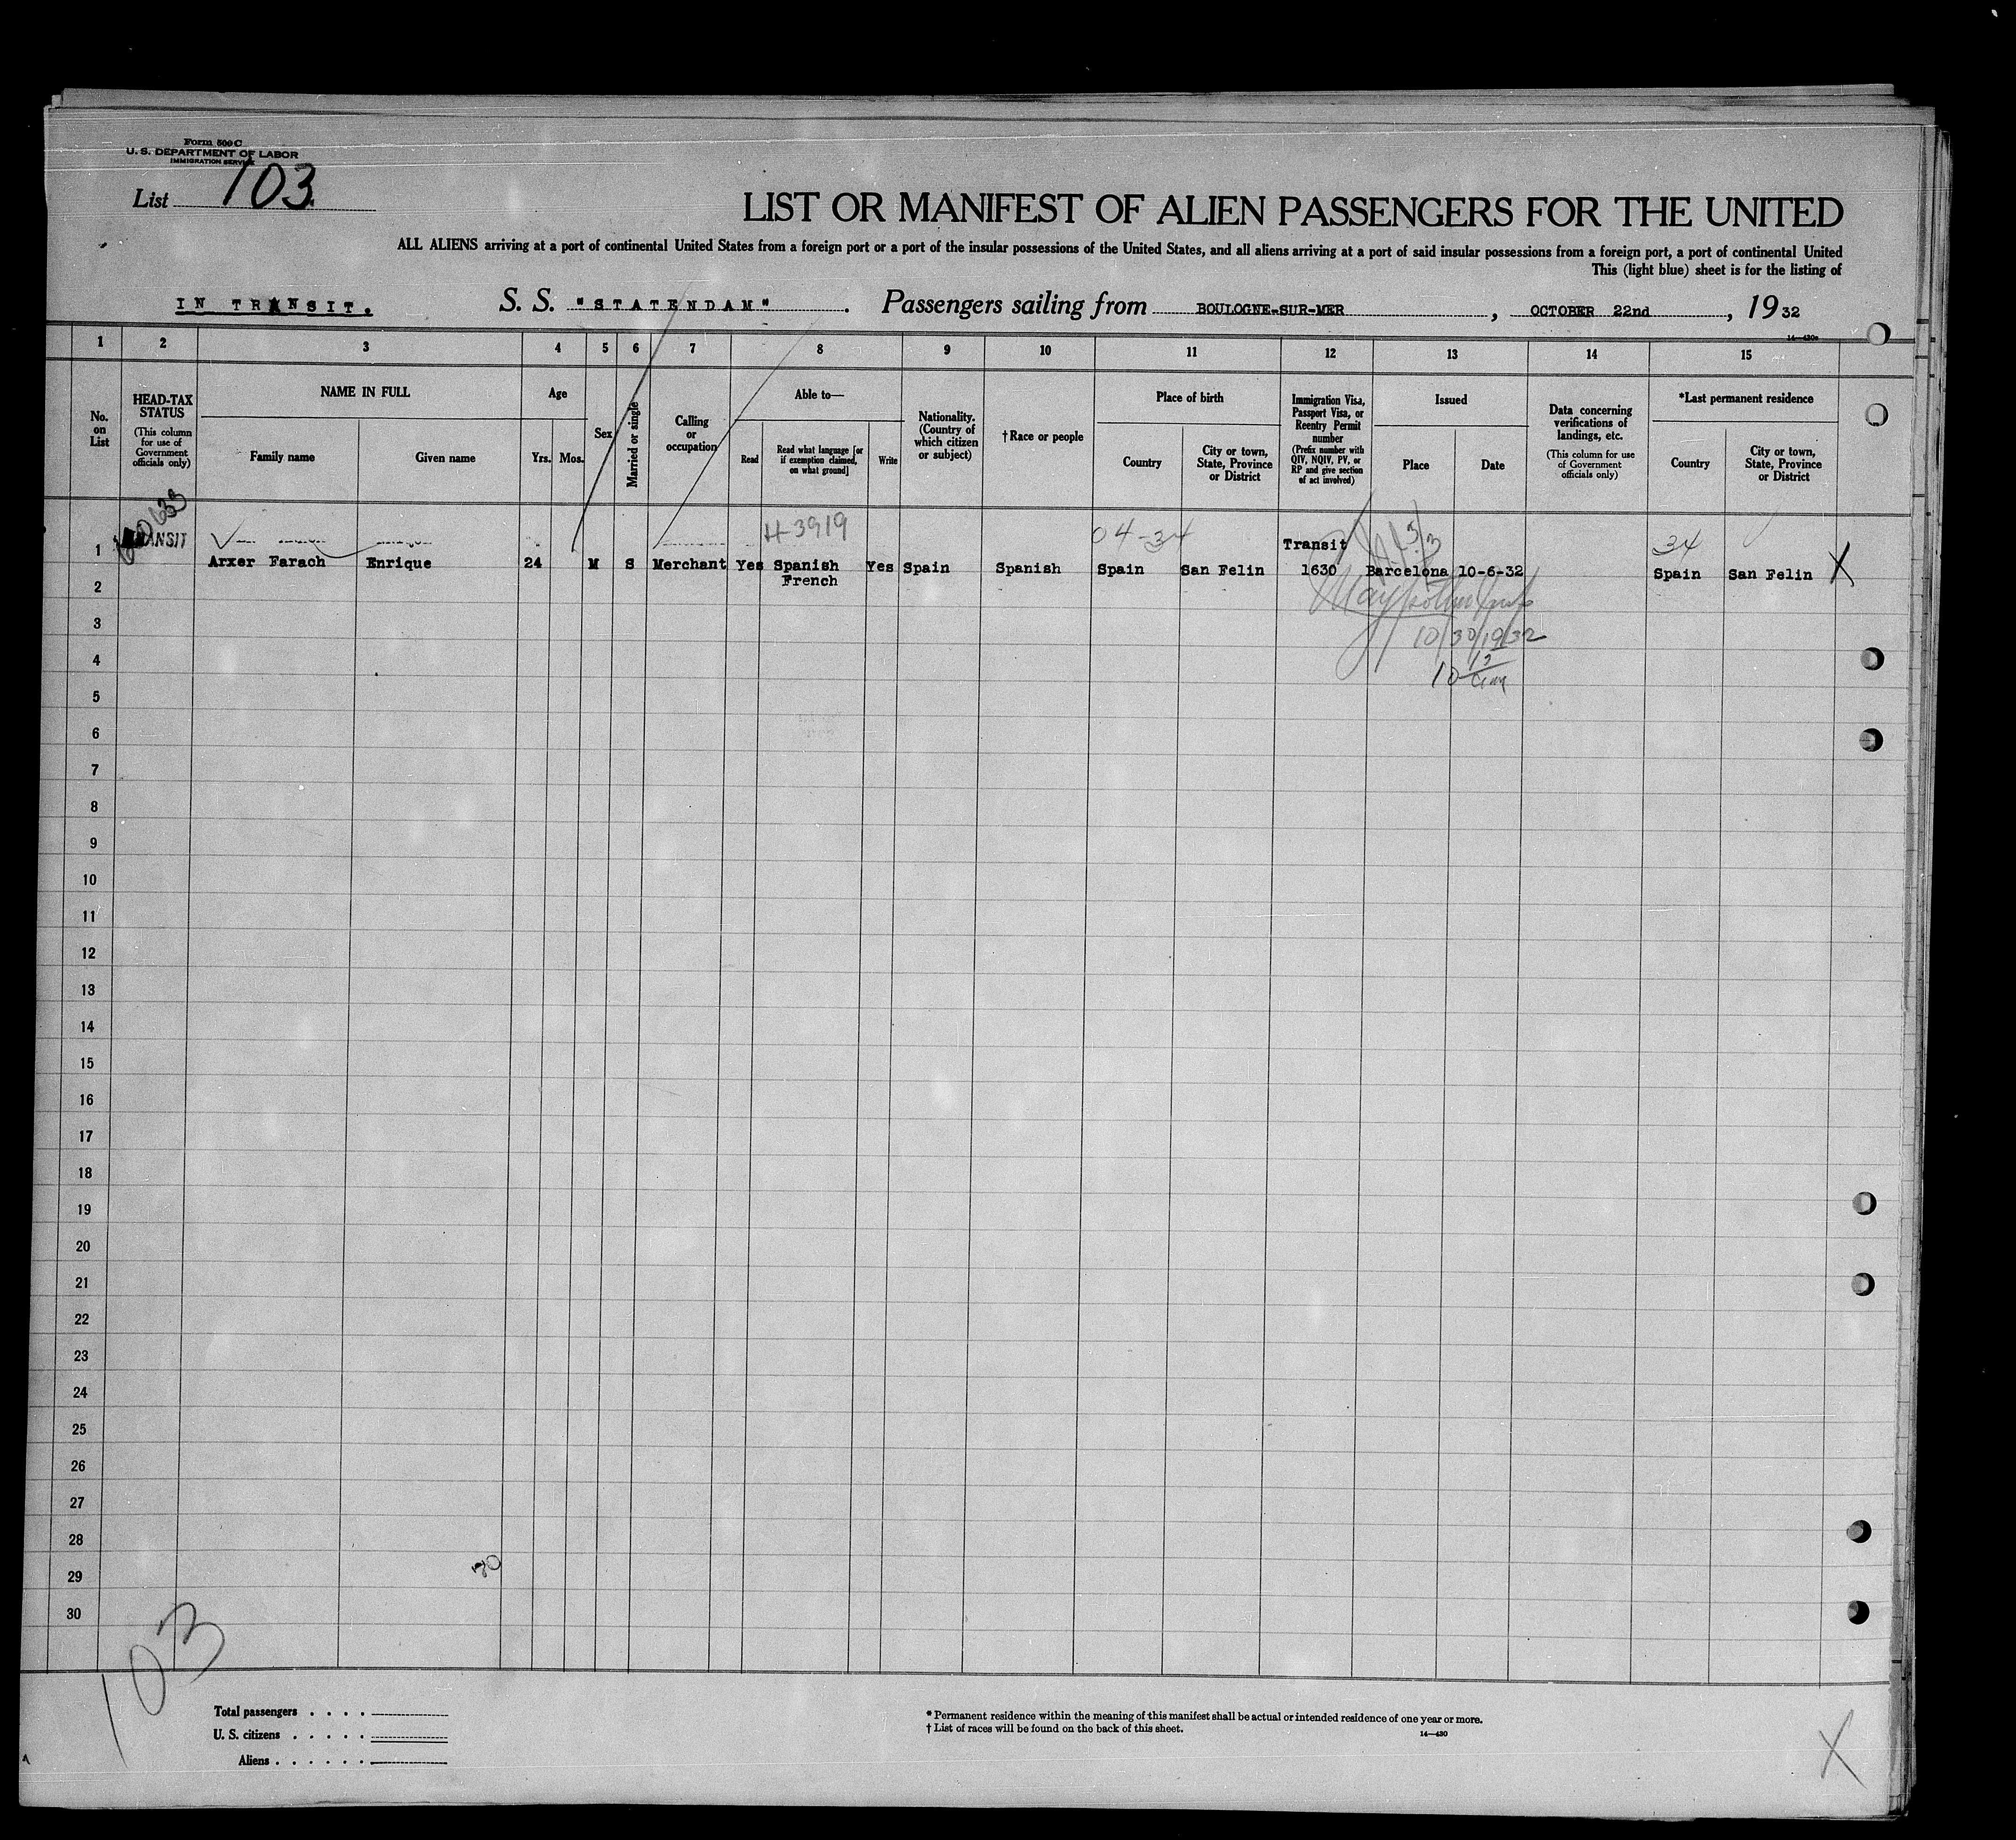 Form 500 C
U. S. DEPARTMENT OF LABOR
IMMIGRATION SERVICE
List 103
LIST OR MANIFEST OF ALIEN PASSENGERS FOR THE UNITED
ALL ALIENS arriving at a port of continental United States from a foreign port or a port of the insular possessions of the United States, and all aliens arriving at a port of said insular possessions from a foreign port, a port of continental United
This (light blue) sheet is for the listing of
IN TRANSIT. S. S. "STATENDAM". Passengers sailing from BOULOGNE-SUR-MER, OCTOBER 22nd, 1932
1 2 3 4 5 6 7 8 9 10 11 12 13 14 15
No. on List
HEAD-TAX STATUS
(This column for use of Government officials only)
NAME IN FULL
Family name Given name
Age
Yrs. Mos.
Sex
Married or single
Calling or occupation
Able to—
Read
Read what language [or if exemption claimed, on what ground]
Write
Nationality. (Country of which citizen or subject)
†Race or people
Place of birth
Country
City or town, State, Province or District
Immigration Visa, Passport Visa, or Reentry Permit number
(Prefix number with QIV, NQIV, PV, or RP and give section of act involved)
Issued
Place Date
Data concerning verifications of landings, etc.
(This column for use of Government officials only)
*Last permanent residence
Country
City or town, State, Province or District
H-3919 04-34 Transit 34
1 Arxer Farach Enrique 24 M S Merchant Yes Spanish Yes Spain Spanish Spain San Felin 1630 Barcelona 10-6-32 Spain San Felin X
French
2
3 10/30/1932
4
5
6
7
8
9
10
11
12
13
14
15
16
17
18
19
20
21
22
23
24
25
26
27
28
29
30
103
Total passengers . . . .
U. S. citizens . . . . .
Aliens . . . . . .
* Permanent residence within the meaning of this manifest shall be actual or intended residence of one year or more.
† List of races will be found on the back of this sheet.
14—430
X